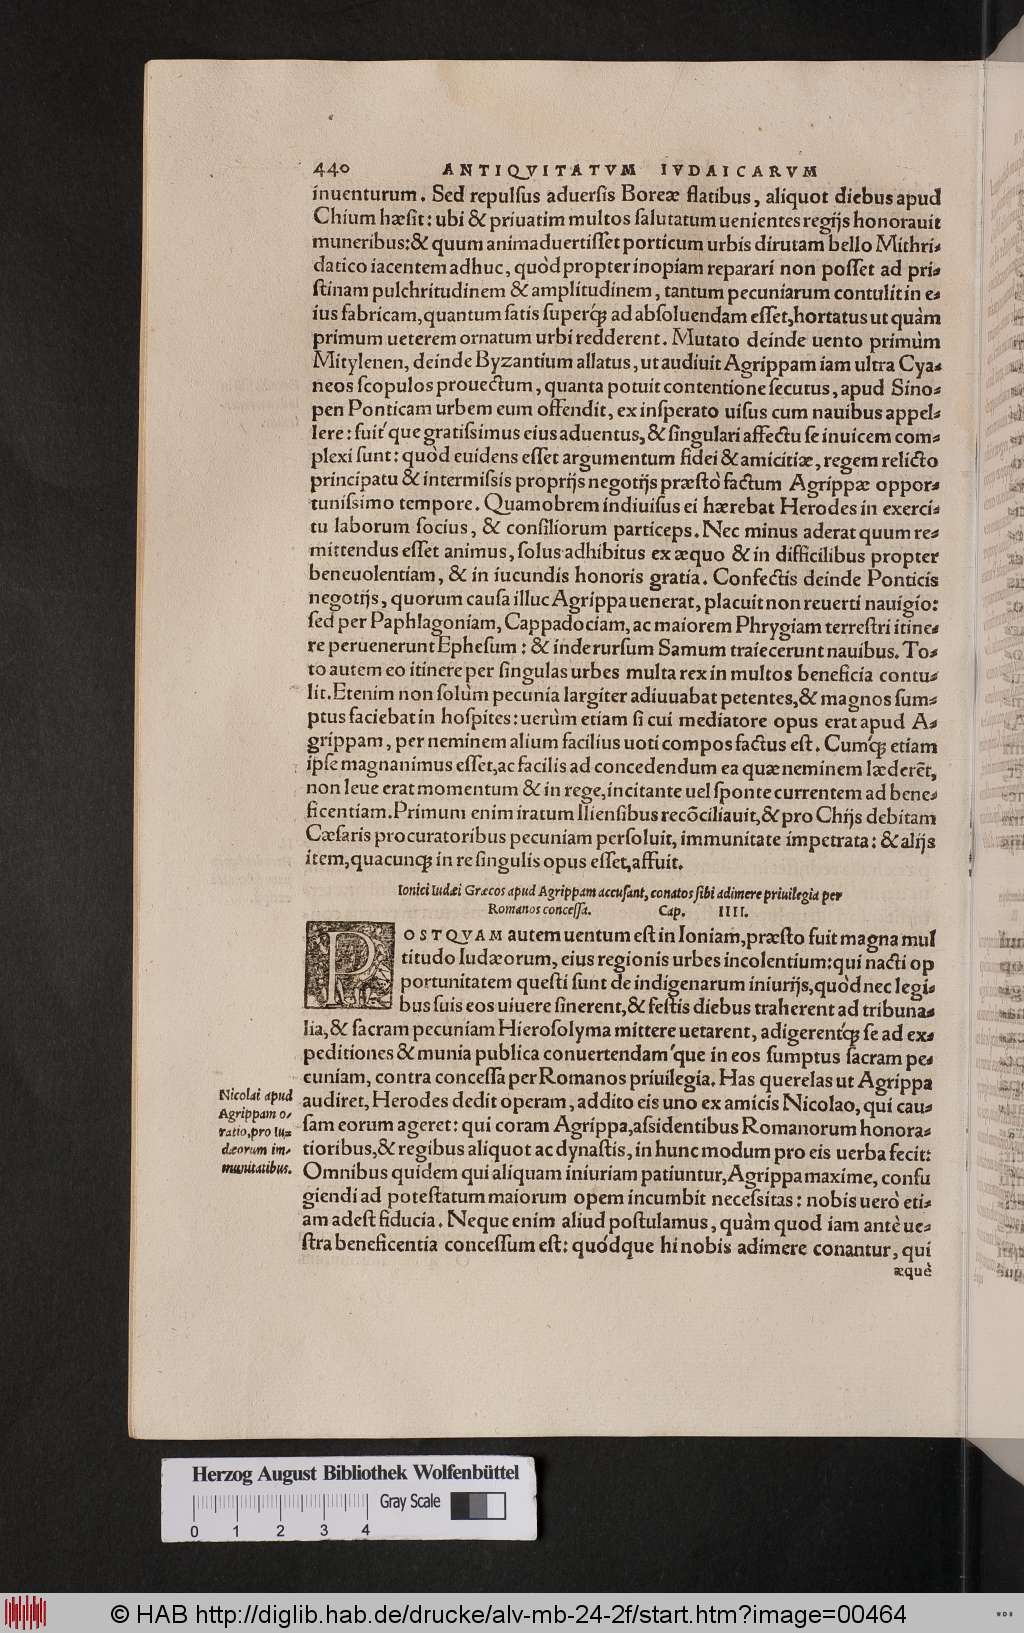 440 ANTIQVITATVM IVDAICARVM
inuenturum. Sed repulſus aduerſis Boreæ flatibus, aliquot diebus apud
Chium hæſit: ubi & priuatim multos ſalutatum uenientes regijs honorauit
muneribus: & quum animaduertiſſet porticum urbis dirutam bello Mithri-
datico iacentem adhuc, quòd propter inopiam reparari non poſſet ad pri-
ſtinam pulchritudinem & amplitudinem, tantum pecuniarum contulit in e-
ius fabricam, quantum ſatis ſuperq́ꝫ ad abſoluendam eſſet, hortatus ut quàm
primum ueterem ornatum urbi redderent. Mutato deinde uento primùm
Mitylenen, deinde Byzantium allatus, ut audiuit Agrippam iam ultra Cya-
neos ſcopulos prouectum, quanta potuit contentione ſecutus, apud Sino-
pen Ponticam urbem eum offendit, ex inſperato uiſus cum nauibus appel-
lere: fuit'que gratiſsimus eius aduentus, & ſingulari affectu ſe inuicem com-
plexi ſunt: quòd euidens eſſet argumentum fidei & amicitiæ, regem relicto
principatu & intermiſsis proprijs negotijs præſtò factum Agrippæ oppor-
tuniſsimo tempore. Quamobrem indiuiſus ei hærebat Herodes in exerci-
tu laborum ſocius, & conſiliorum particeps. Nec minus aderat quum re-
mittendus eſſet animus, ſolus adhibitus ex æquo & in difficilibus propter
beneuolentiam, & in iucundis honoris gratia. Confectis deinde Ponticis
negotijs, quorum cauſa illuc Agrippa uenerat, placuit non reuerti nauigio:
ſed per Paphlagoniam, Cappadociam, ac maiorem Phrygiam terreſtri itine-
re peruenerunt Epheſum: & inde rurſum Samum traiecerunt nauibus. To-
to autem eo itinere per ſingulas urbes multa rex in multos beneficia contu-
lit. Etenim non ſolùm pecunia largiter adiuuabat petentes, & magnos ſum-
ptus faciebat in hoſpites: uerùm etiam ſi cui mediatore opus erat apud A-
grippam, per neminem alium facilius uoti compos factus eſt. Cumq́ꝫ etiam
ipſe magnanimus eſſet, ac facilis ad concedendum ea quæ neminem læderēt,
non leue erat momentum & in rege, incitante uel ſponte currentem ad bene-
ficentiam. Primum enim iratum Ilienſibus recōciliauit, & pro Chijs debitam
Cæſaris procuratoribus pecuniam perſoluit, immunitate impetrata: & alijs
item, quacunqꝫ in re ſingulis opus eſſet, affuit.
Ionici Iudæi Græcos apud Agrippam accuſant, conatos ſibi adimere priuilegia per
Romanos conceſſa. Cap. IIII.
POSTQVAM autem uentum eſt in Ioniam, præſto fuit magna mul
titudo Iudæorum, eius regionis urbes incolentium: qui nacti op
portunitatem queſti ſunt de indigenarum iniurijs, quòd nec legi-
bus ſuis eos uiuere ſinerent, & feſtis diebus traherent ad tribuna-
lia, & ſacram pecuniam Hieroſolyma mittere uetarent, adigerentq́ꝫ ſe ad ex-
peditiones & munia publica conuertendam'que in eos ſumptus ſacram pe-
cuniam, contra conceſſa per Romanos priuilegia. Has querelas ut Agrippa
audiret, Herodes dedit operam, addito eis uno ex amicis Nicolao, qui cau-
ſam eorum ageret: qui coram Agrippa, aſsidentibus Romanorum honora-
tioribus, & regibus aliquot ac dynaſtis, in hunc modum pro eis uerba fecit:
Omnibus quidem qui aliquam iniuriam patiuntur, Agrippa maxime, confu
giendi ad poteſtatum maiorum opem incumbit neceſsitas: nobis uerò eti-
am adeſt fiducia. Neque enim aliud poſtulamus, quàm quod iam antè ue-
ſtra beneficentia conceſſum eſt: quódque hi nobis adimere conantur, qui
æquè
Nicolai apud
Agrippam o-
ratio, pro Iu-
dæorum im-
munitatibus.
Herzog August Bibliothek Wolfenbüttel
Gray Scale
0 1 2 3 4
© HAB http://diglib.hab.de/drucke/alv-mb-24-2f/start.htm?image=00464